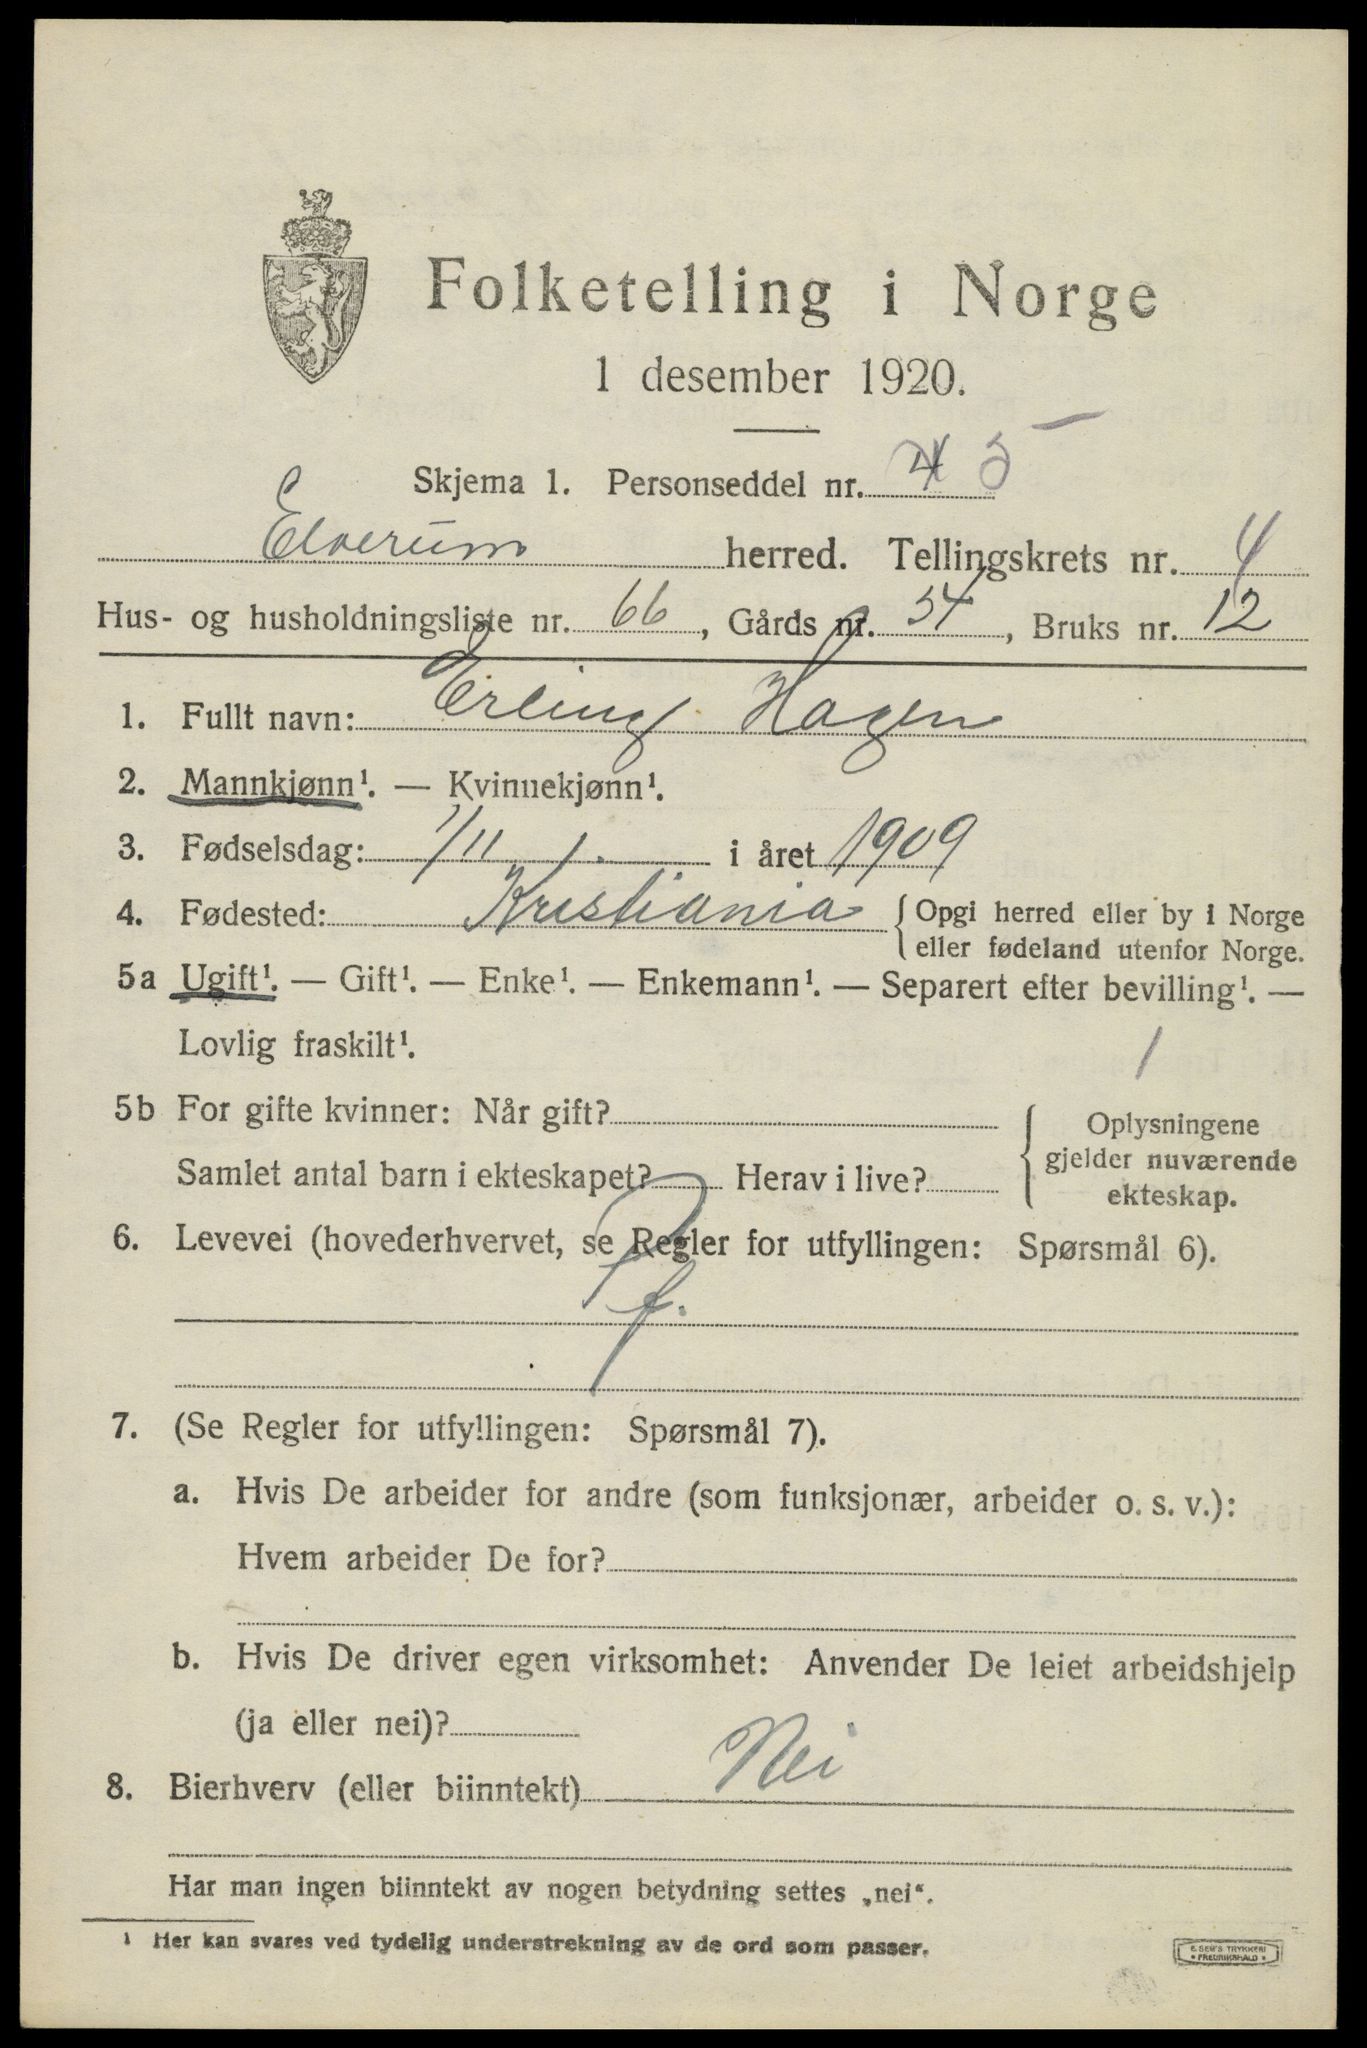 Folketelling i Norge
1 desember 1920.
Skjema 1. Personseddel nr. 4 5
Elverum herred. Tellingskrets nr. 4
Hus- og husholdningsliste nr. 66, Gårds nr. 54, Bruks nr. 12
1. Fullt navn: Erling Hagen
2. Mannkjønn¹. — Kvinnekjønn¹.
3. Fødselsdag: 1/11 i året 1909
4. Fødested: Kristiania { Opgi herred eller by i Norge
eller fødeland utenfor Norge.
5a Ugift¹. — Gift¹. — Enke¹. — Enkemann¹. — Separert efter bevilling¹. —
Lovlig fraskilt¹.
1
5b For gifte kvinner: Når gift? { Oplysningene
gjelder nuværende
ekteskap.
Samlet antal barn i ekteskapet? Herav i live?
6. Levevei (hovederhvervet, se Regler for utfyllingen: Spørsmål 6).
f.
7. (Se Regler for utfyllingen: Spørsmål 7).
a. Hvis De arbeider for andre (som funksjonær, arbeider o. s. v.):
Hvem arbeider De for?
b. Hvis De driver egen virksomhet: Anvender De leiet arbeidshjelp
(ja eller nei)?
8. Bierhverv (eller biinntekt) Nei
Har man ingen biinntekt av nogen betydning settes „nei“.
¹ Her kan svares ved tydelig understrekning av de ord som passer.
E. SEM'S TRYKKERI
• FREDRIKSHALD •